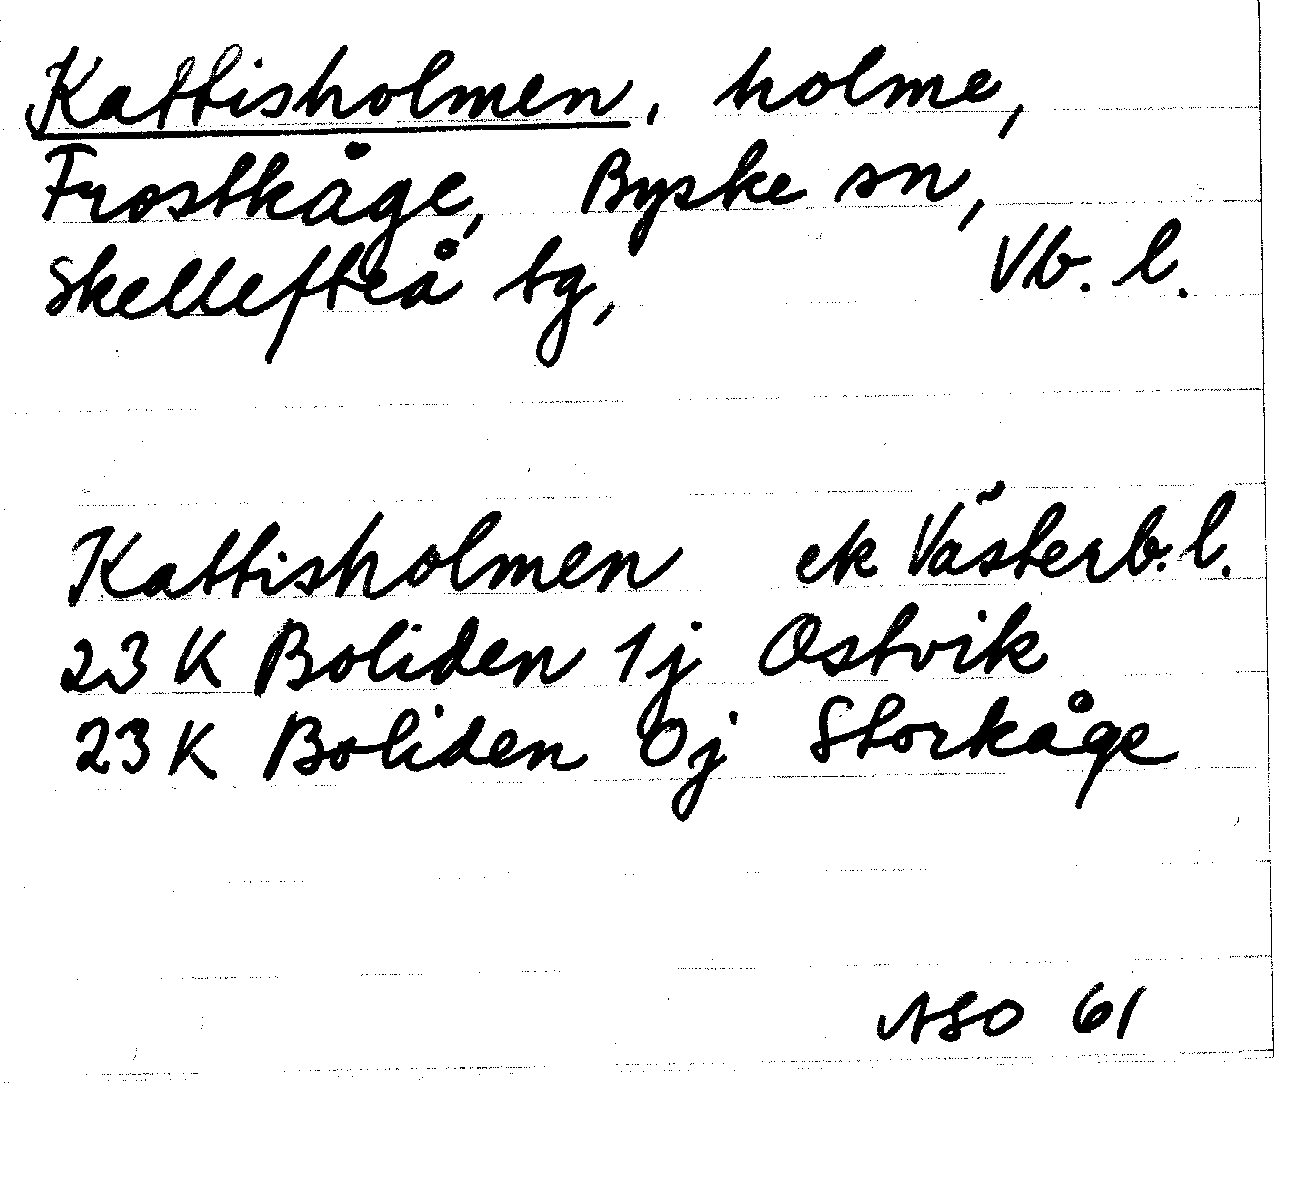 Kattisholmen, holme,
Frostkåge, Byske sn,
Skellefteå tg, Vb. l.
Kattisholmen ek Västerb. l.
23 K Boliden 1j Ostvik
23 K Boliden 0j Storkåge
ASO 61